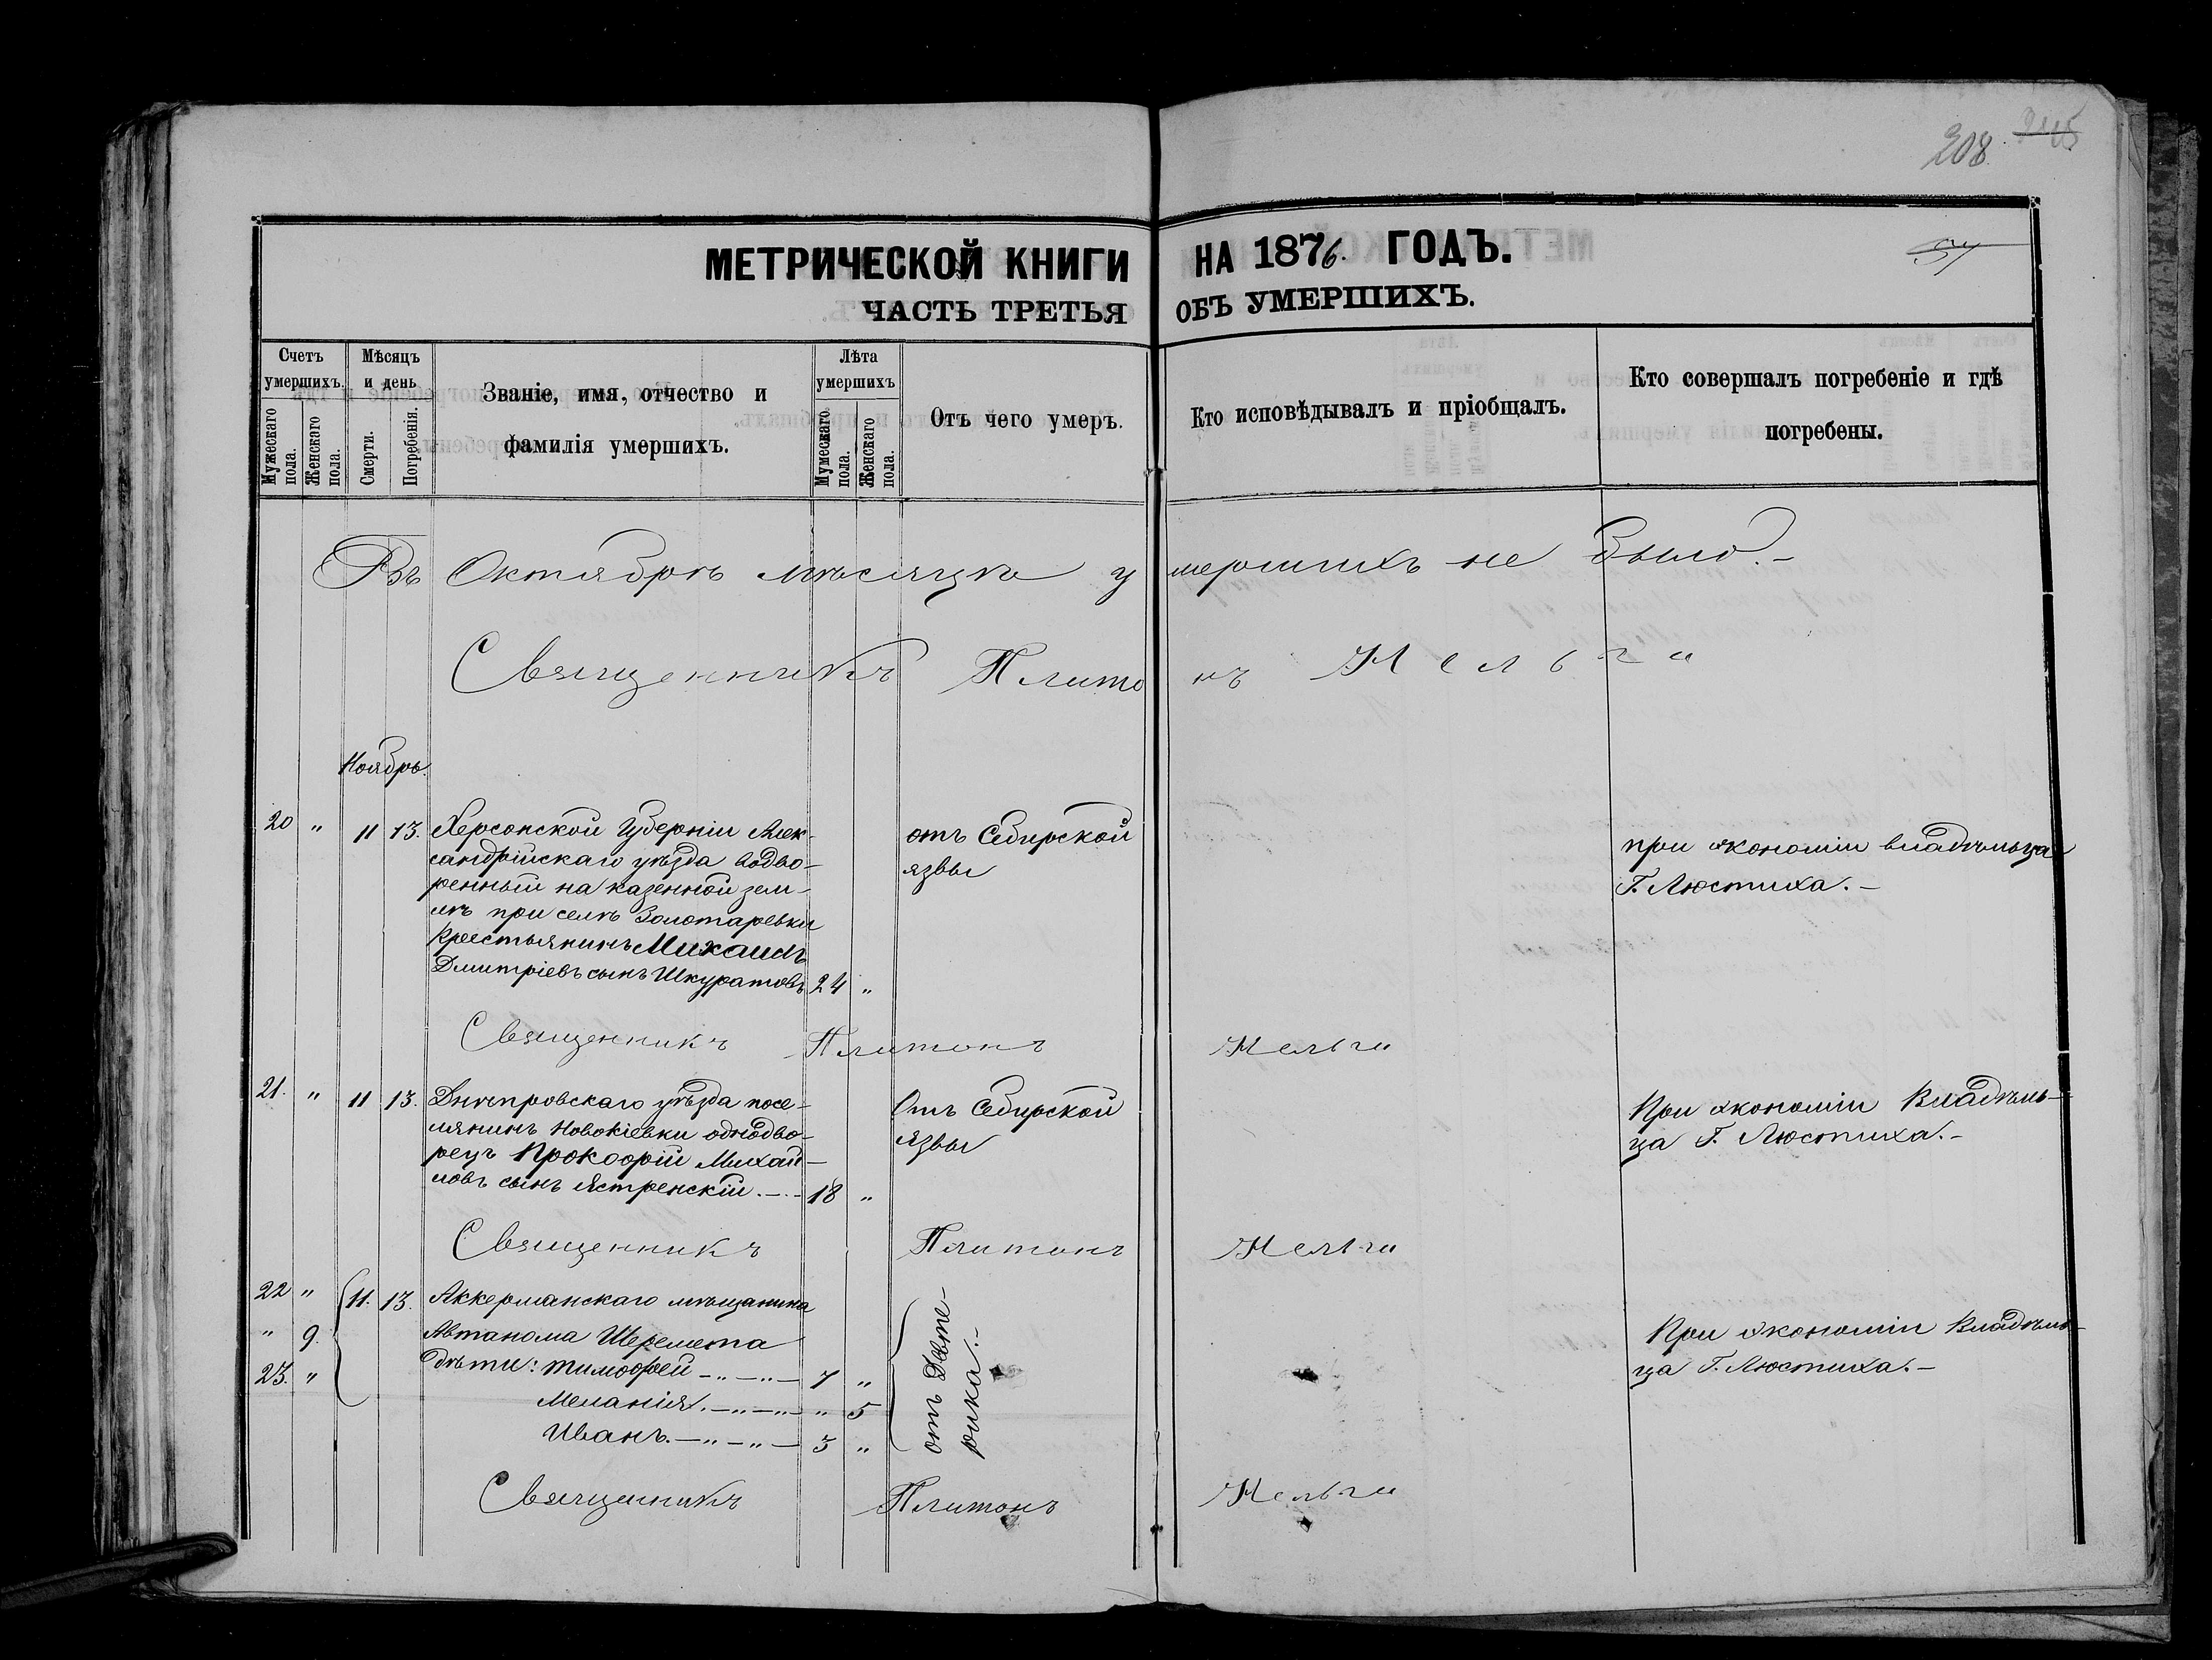 208.
МЕТРИЧЕСКОЙ КНИГИ НА 1876. ГОДЪ.
ЧАСТЬ ТРЕТЬЯ ОБЪ УМЕРШИХЪ.
Счетъ умершихъ.
Мужескаго пола.
Женскаго пола.
Мѣсяцъ и день
Смерти.
Погребенія.
Званіе, имя, отчество и
фамилія умершихъ.
Лѣта умершихъ
Мужескаго пола.
Женскаго пола.
Отъ чего умеръ.
Кто исповѣдывалъ и пріобщалъ.
Кто совершалъ погребеніе и гдѣ
погребены.
Въ Октябрѣ мѣсяцѣ умершихъ не было.-
Священникъ Платонъ
Ноябрь.
20 " 11 13. Херсонской Губерніи Алек-
сандрійскаго уѣзда водво-
ренный на казенной зем-
лѣ при селѣ Золотаревки
Крестьянинъ Михаилъ
Дмитріевъ сынъ Шкуратовъ 24 "
отъ Сибирской
язвы
при экономіи владѣльца
Г. Люстиха.-
Священникъ Платонъ
21. " 11 13. Днѣпровскаго уѣзда посе-
лянинъ Новокіевки однодво-
рецъ Прокофій Михай-
ловъ сынъ Ястренскій.-.- 18 "
Отъ Сибирской
язвы
При экономіи Владѣль-
ца Г. Люстиха.-
Священникъ Платонъ
22 " 11. 13. Аккерманскаго мѣщанина
" 9. Автанома Шеремета
23. " дѣти: Тимофей -"-"- 7 "
Меланія.-"-"- " 5
Иванъ.-"-"- 3 "
отъ Дифте-
рика.-
При экономіи Владѣль-
ца Г. Люстиха.-
Священникъ Платонъ